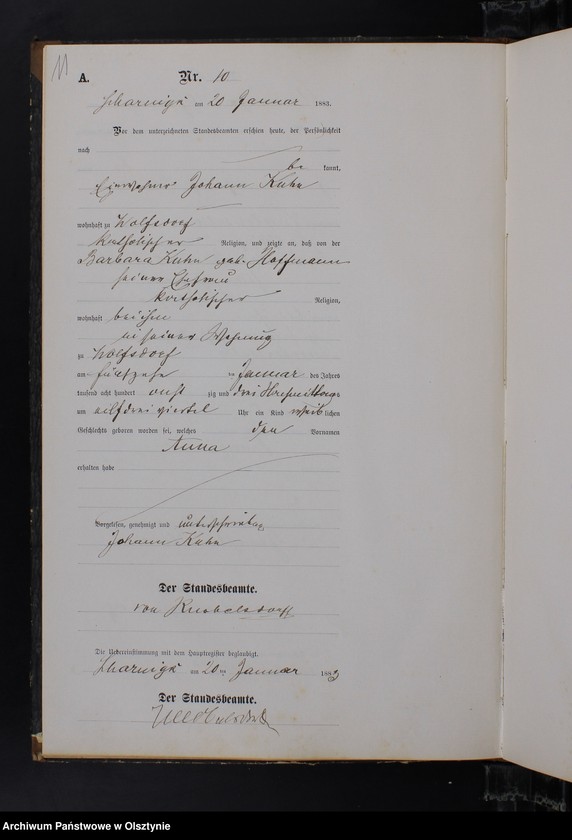 11
A. Nr. 10
Scharnigk am 20 Januar 1883.
Vor dem unterzeichneten Standesbeamten erschien heute, der Persönlichkeit
nach
be kannt,
Einwohner Johann Kuhn
wohnhaft zu Wolfsdorf
katholischer Religion, und zeigte an, daß von der
Barbara Kuhn geb. Hoffmann
seiner Ehefrau
katholischer Religion,
wohnhaft bei ihm
in seiner Wohnung
zu Wolfsdorf
am fünfzehn ten Januar des Jahres
tausend acht hundert acht zig und drei Vormittags
um elf drei viertel Uhr ein Kind weib lichen
Geschlechts geboren worden sei, welches den Vornamen
Anna
erhalten habe
Vorgelesen, genehmigt und unterschrieben
Johann Kuhn
Der Standesbeamte.
von
Die Uebereinstimmung mit dem Hauptregister beglaubigt.
Scharnigk am 20 ten Januar 1883
Der Standesbeamte.
Archiwum Państwowe w Olsztynie